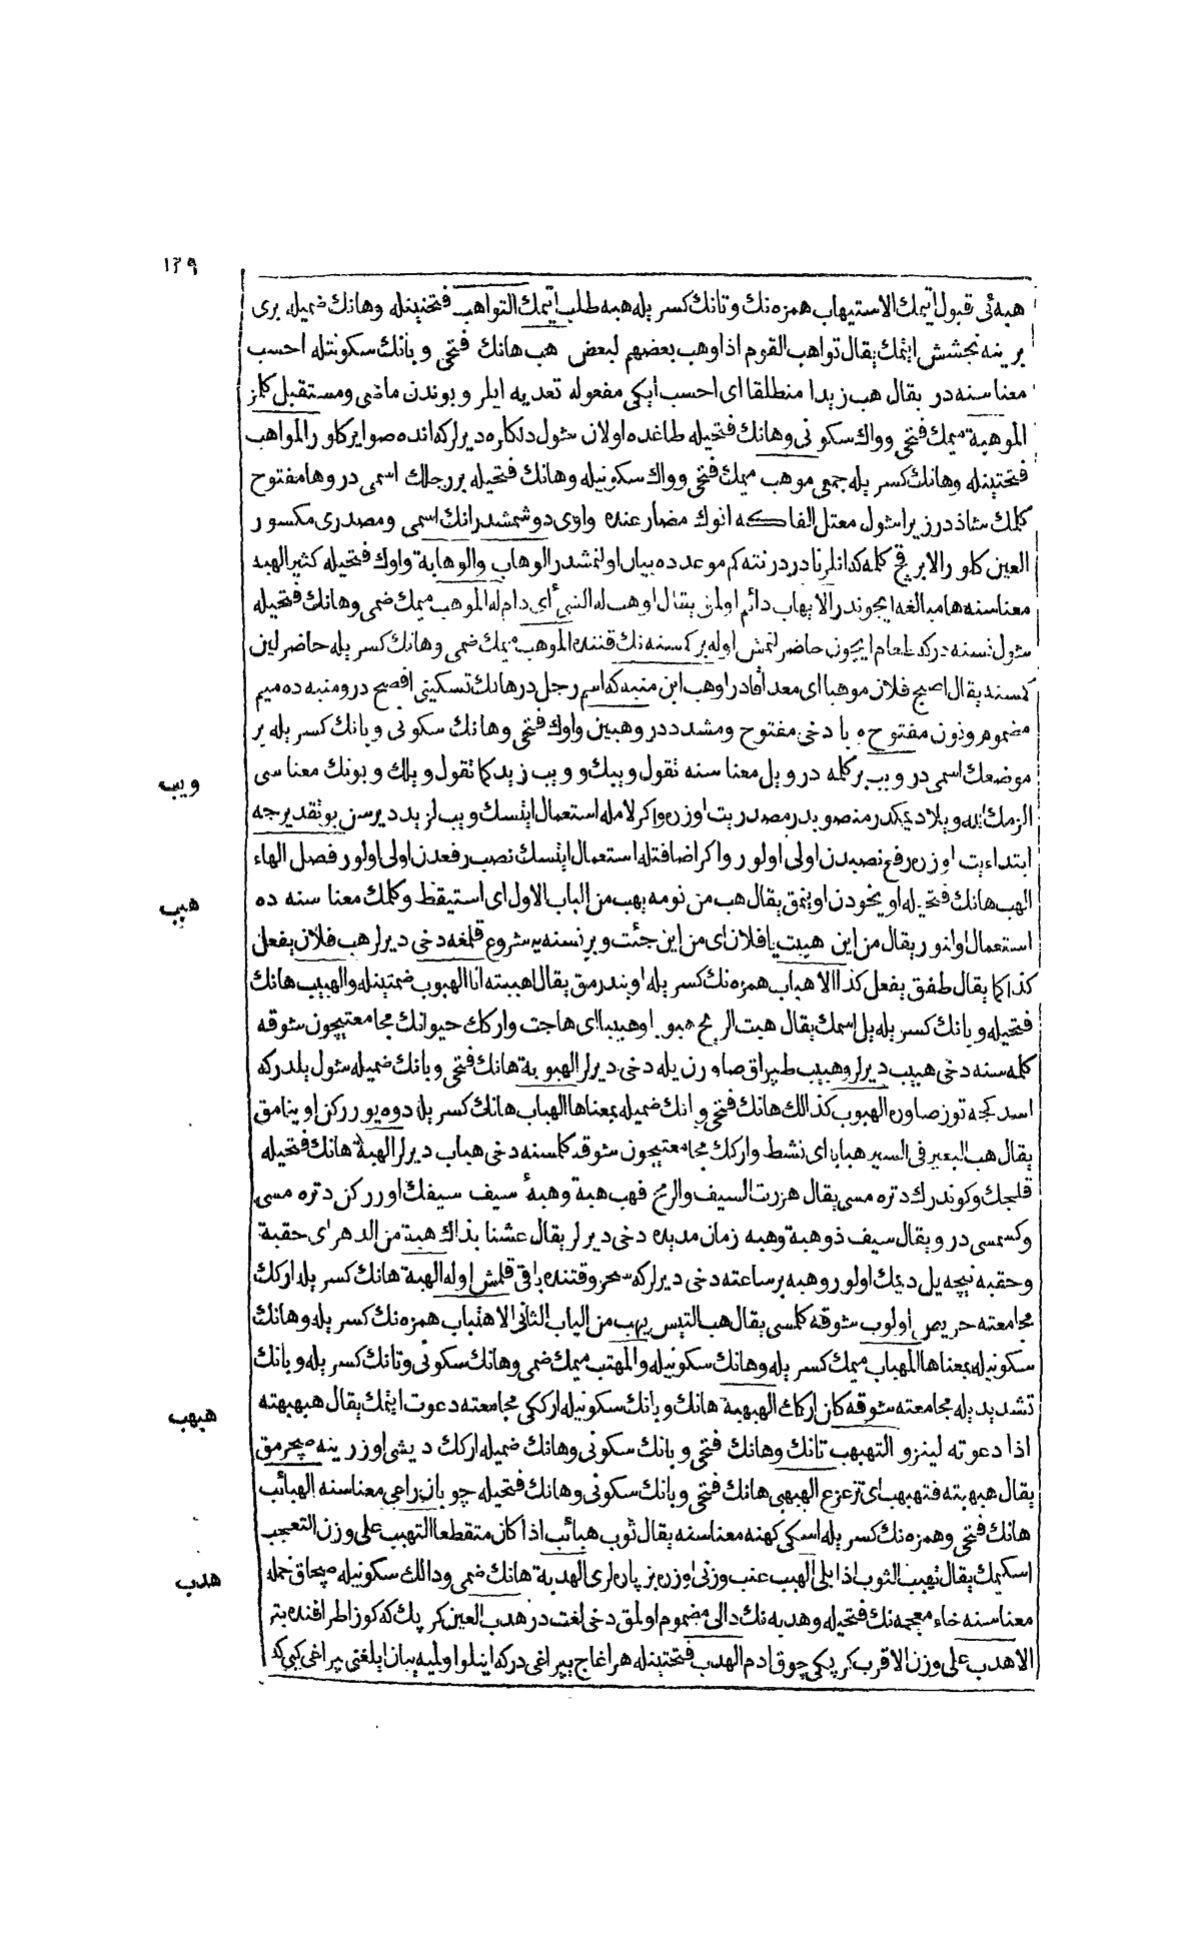 ١٣٩
هبه‌ئى قبول ايتمك الاستيهاب همزه‌نك وتانك كسريله هبه طلب ايتمك التواهب فتحتينله وهانك ضميله برى
برينه بخشش ايتمك يقال تواهب القوم اذا وهب بعضهم لبعض هب هانك فتحى وبانك سكونتله احسب
معناسنه در يقال هب زيدا منطلقا اى احسب ايكى مفعوله تعديه ايلر و بوندن ماضى ومستقبل كلمز
الموهبة ميمك فتحى وواك سكونى وهانك فتحيله طاغده اولان شول دلكلره ديرلركه انده صو ايركلور المواهب
فتحتينله وهانك كسريله جمعى موهب ميمك فتحى وواك سكونيله وهانك فتحيله بر رجلك اسمى در وها مفتوح
كلمك شاذدر زيرا شول معتل الفاكه انوك مضارعنده واوى دوشمشدر انك اسمى ومصدرى مكسور
العين كلور الا برقچ كلمه كه انلر نادردر نته كم موعدده بيان اولنمشدر الوهاب والوهابة واوك فتحيله كثير الهبه
معناسنه ها مبالغه ايچوندر الايهاب دائم اولمق يقال اوهب له الشئ اى دام له الموهب ميمك ضمى وهانك فتحيله
شول نسنه دركه طعام ايچون حاضرلنمش اوله بر كسنه‌نك قتنده الموهب ميمك ضمى وهانك كسريله حاضرلين
كسنه يقال اصبح فلان موهبا اى معدا قادرا وهب ابن منبه كه اسم رجل در هانك تسكينى افصح در ومنبه ده ميم
مضموم ونون مفتوح ه با دخى مفتوح ومشدددر وهبين واوك فتحى وهانك سكونى وبانك كسريله بر
موضعك اسمى در ويب بر كلمه در ويل معناسنه تقول ويبك وويب زيد كما تقول ويلك وبونك معناسى
الزمك الله ويلا ديمكدر منصوبدر مصدريت اوزره واكر لامله استعمال ايتسك ويب لزيد ديرسن بو تقديرجه
ابتدائيت اوزره رفع نصبدن اولى اولور واكر اضافتله استعمال ايتسك نصب رفعدن اولى اولور فصل الهاء
الهب هانك فتحيله اويخودن اويانمق يقال هب من نومه يهب من الباب الاول اى استيقظ وكلمك معناسنه ده
استعمال اولنور يقال من اين هببت يا فلان اى من اين جئت وبر نسنه‌يه شروع قلمغه دخى ديرلر هب فلان يفعل
كذا كما يقال طفق يفعل كذا الاهباب همزه‌نك كسريله اويندرمق يقال اهببته انا الهبوب ضمتينله والهبيب هانك
فتحيله وبانك كسريله يل اسمك يقال هبت الريح هبوبا وهبيبا اى هاجت واركك حيوانك مجامعتيچون شوقه
كلمه‌سنه دخى هبيب ديرلر وهبيب طپراق صاورن يله دخى ديرلر الهبوبة هانك فتحى وبانك ضميله شول يلدركه
اسدكجه توز صاوره الهبوب كذالك هانك فتحى وبانك ضميله بمعناها الهباب هانك كسريله دوه يوررركن اوينامق
يقال هب البعير فى السير هبابا اى نشط واركك مجامعتيچون شوقه كلمسنه دخى هباب ديرلر الهبة هانك فتحيله
قلجك وكوندرك دتره مسى يقال هززت السيف والرمح فهب هبة وهبة سيف سيفك اورركن دتره مسى
وكسمسى در ويقال سيف ذو هبة وهبه زمان مديده دخى ديرلر يقال عشنا بذاك هبة من الدهر اى حقبة
وحقبه نيچه ييل ديمك اولور وهبه بر ساعته دخى ديرلركه سحر وقتنده باقى قلمش اوله الهبة هانك كسريله اركك
مجامعته حريص اولوب شوقه كلمسى يقال هب التيس يهب من الباب الثانى الاهتباب همزه‌نك كسريله وهانك
سكونيله بمعناها المهباب ميمك كسريله وهانك سكونيله والمهتب ميمك ضمى وهانك سكونى وتانك كسريله وبانك
تشديديله مجامعته شوقه كلن اركك الهبهبة هانك وبانك سكونيله ارككى مجامعته دعوت ايتمك يقال هبهبته
اذا دعوته لينزو التهبهب تانك وهانك فتحى وبانك سكونى وهانك ضميله اركك ديشى اوزرينه صچرمق
يقال هبهبته فتهبهب اى تزعزع الهبهبى هانك فتحى وبانك سكونى وهانك فتحيله چوبان راعى معناسنه الهبائب
هانك فتحى وهمزه‌نك كسريله اسكى كهنه معناسنه يقال ثوب هبائب اذا كان متقطعا التهبب على وزن التعجب
اسكيمك يقال تهبب الثوب اذا بلى الهبب عنب وزنى اوزره بز پاره‌لرى الهدبة هانك ضمى ودالك سكونيله صچاق خمله
معناسنه خاء معجمه‌نك فتحيله وهدبه‌نك دالى مضموم اولمق دخى لغت در هدب العين كرپك كه كوز اطرافنده بتر
الاهدب على وزن الاقرب كرپكى چوق ادم الهدب فتحتينله هر اغاج يپراغى دركه اينلو اولميه يبان ايلغنى يپراغى كبى كه
ويب
هبب
هبهب
هدب